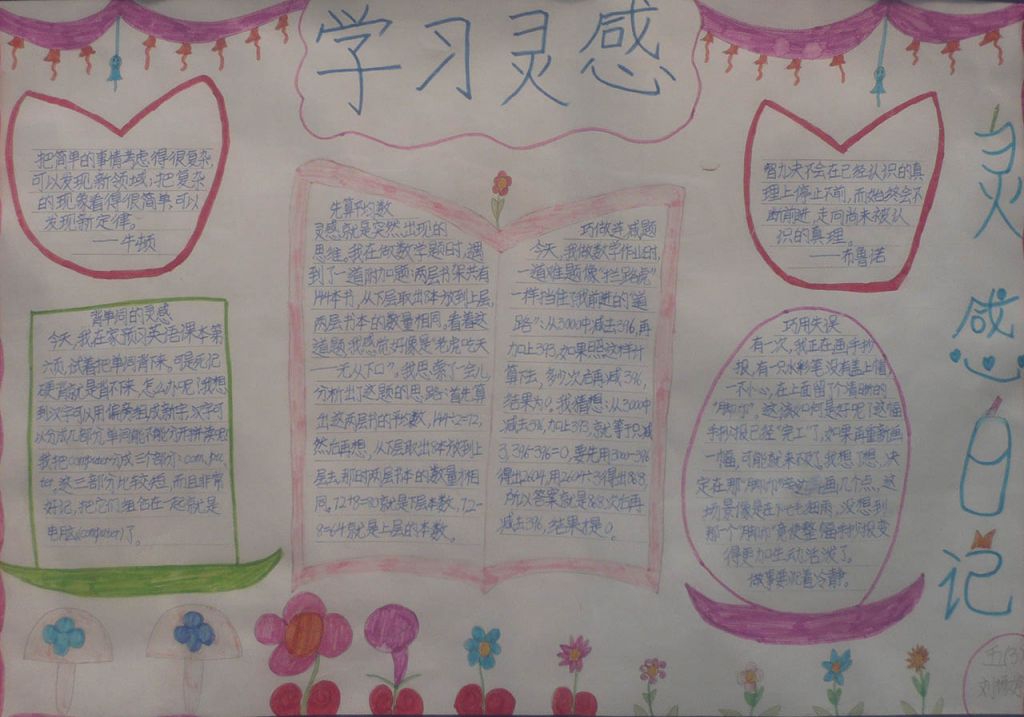 学习灵感
把简单的事情考虑得很复杂,
可以发现新领域;把复杂
的现象看得很简单,可以
发现新定律。
——牛顿
背单词的灵感
今天,我在家预习英语课本第
六页,试着把单词背下来,可是死记
硬背就是背不来,怎么办呢?我想
到汉字可以用偏旁组成新字,汉字可
以分成几部分,单词能不能分开拼读呢!
我把computer分成三个部分:com,pu,
ter,这三部分比较短,而且非常
好记,把它们组合在一起就是
电脑(computer)了。
先算平均数
灵感,就是突然出现的
思维。我在做数学题时,遇
到了一道附加题:两层书架共有
144本书,从下层取出8本放到上层,
两层书本的数量相同。看着这
道题,我感觉好像是“老虎吃天
——无从下口”,我思索了一会儿
分析出了这题的思路:首先算
出这两层书的平均数,144÷2=72,
然后再想,从下层取出8本放到上
层去,那时两层书本的数量才相
同。72+8=80就是下层本数,72-
8=64就是上层的本数。
巧做连减题
今天,我做数学作业时,
一道难题像“拦路虎”
一样挡住了我前进的“道
路”:从3000中减去396,再
加上393,如果照这样计
算下去,多少次后再减396,
结果为0。我猜想:从3000中
减去396,加上393,就等于只减
3,396-396=0,要先用3000-396
得出2604,用2604÷3得出868,
所以答案就是868次后再
减去396,结果才是0。
智力决不会在已经认识的真
理上停止不前,而始终会不
断前进,走向尚未被认
识的真理。
——布鲁诺
巧用失误
有一次,我正在画手抄
报,有一只水彩笔没有盖上帽,
一不小心,在上面留了个清晰的
“脚印”,这该如何是好呢?这幅
手抄报已经“完工”了,如果再重新画
一幅,可能就来不及了。我想了想,决
定在那“脚印”旁边画几个点,这
那个“脚印”竟使整幅手抄报变
得更加生动活泼了。
做事要沉着冷静。
灵感日记
五(3)